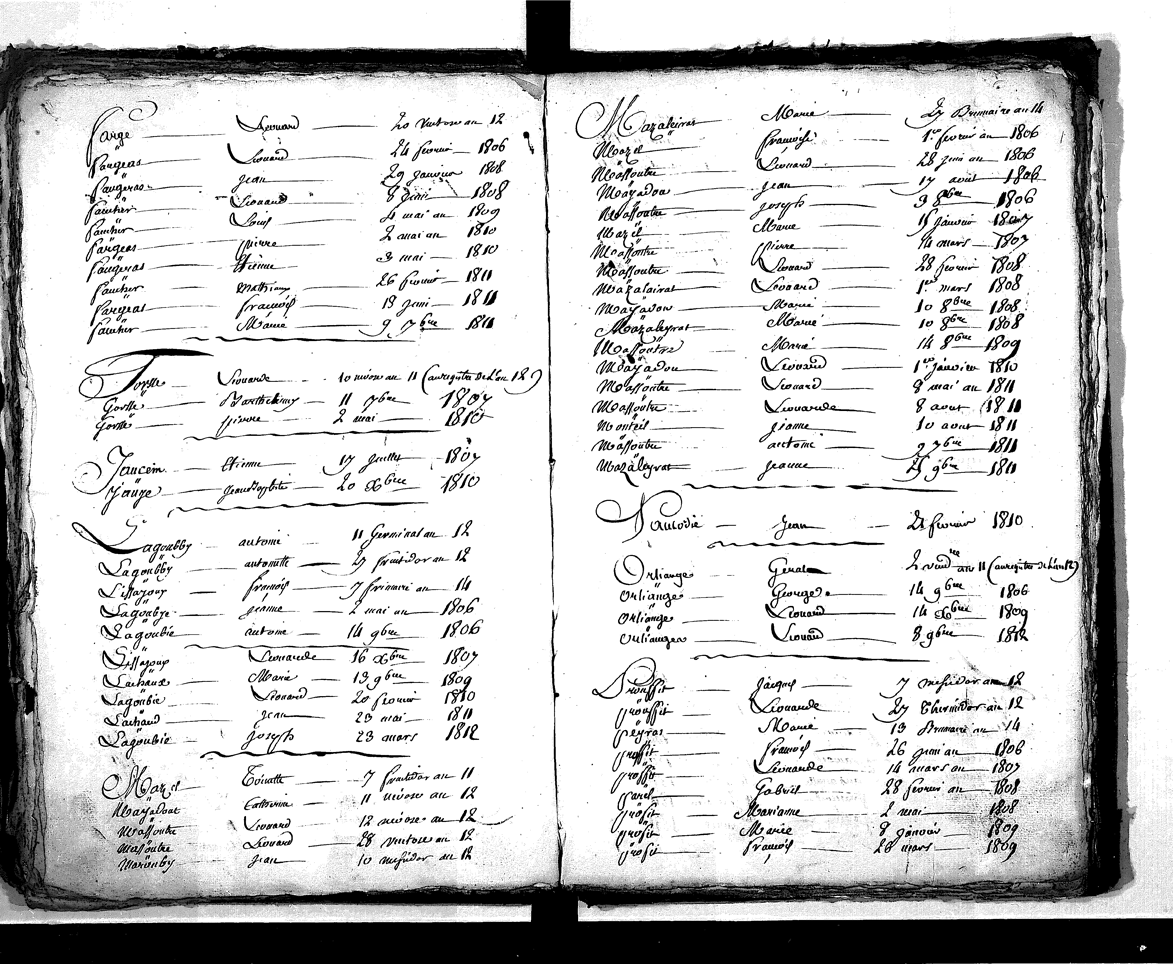 farge Leonard 20 ventose an 12
fargeas Léonard 24 fevrier 1806
faugeras jean 29 janvier 1808
fautier Leonard 8 juin 1808
fautier Louis 4 mai an 1809
fargeas pierre 2 mai an 1810
faugeras Etienne 3 mai 1810
fautier Mathieu 26 fevrier 1811
fargeas françois 13 juin 1811
fautier Marie 9 7bre 1811
Gorsse Leonarde 10 nivose an 11 (au registre de l'an 12)
Gorsse Barthelemy 11 7bre 1807
Gorsse pierre 2 mai 1810
Jaucem Etienne 17 juillet 1807
Jauge jean Baptiste 20 Xbre 1810
Lagoubby antoine 11 Germinal an 12
Lagoubby antoinette 29 fructidor an 12
Lissajoux françois 7 frimaire an 14
Lagoubye jeanne 2 mai an 1806
Lagoubie antoine 14 9bre 1806
Lissajoux Leonarde 16 Xbre 1807
Lachaux Marie 13 9bre 1809
Lagoubie Léonard 20 fevrier 1810
Lachaud jean 23 mai 1811
Lagoubie joseph 23 mars 1812
Mazel Toinette 7 fructidor an 11
Mayadoat Catherine 11 nivose an 12
Massoutre Leonard 12 nivose an 12
Massoutre Léonard 28 ventose an 12
Marouby jean 10 messidor an 12
Mazaleirat Marie 27 Brumaire an 14
Mazel françoise 1er fevrier an 1806
Massoutre Léonard 28 juin an 1806
Mayadou jean 17 avril 1806
Massoutre joseph 9 8bre 1806
Mazel Marie 15 janvier 1807
Massoutre pierre 14 mars 1807
Massoutre Léonard 28 fevrier 1808
Mazalairat Leonard 1er mars 1808
Mayadou Marie 10 8bre 1808
Mazaleyrat Marie 10 8bre 1808
Massoutre Marie 14 8bre 1809
Mayadou Leonard 1er janvier 1810
Massoutre Leonard 9 mai an 1811
Massoutre Léonarde 8 aout 1811
Monteil jeanne 10 aout 1811
Massoutre antoine 9 7bre 1811
Mazaleyrat jeanne 25 9bre 1811
Naucodie jean 21 fevrier 1810
Orliange Geral 2 vendre an 11 (au registre de l'an 12)
Orliange George 14 9bre 1806
Orliange Leonard 14 Xbre 1809
Orlianges Léonard 8 9bre 1812
Prouffit jacques 7 messidor an 12
prouffit Leonarde 27 Thermidor an 12
peyras Marie 13 Brumaire an 14
proffit françois 26 juin an 1806
proffit Léonarde 14 mars an 1807
parel Gabriel 28 fevrier an 1808
profit Marianne 2 mai 1808
profit Marie 9 janvier 1809
profit françois 26 mars 1809